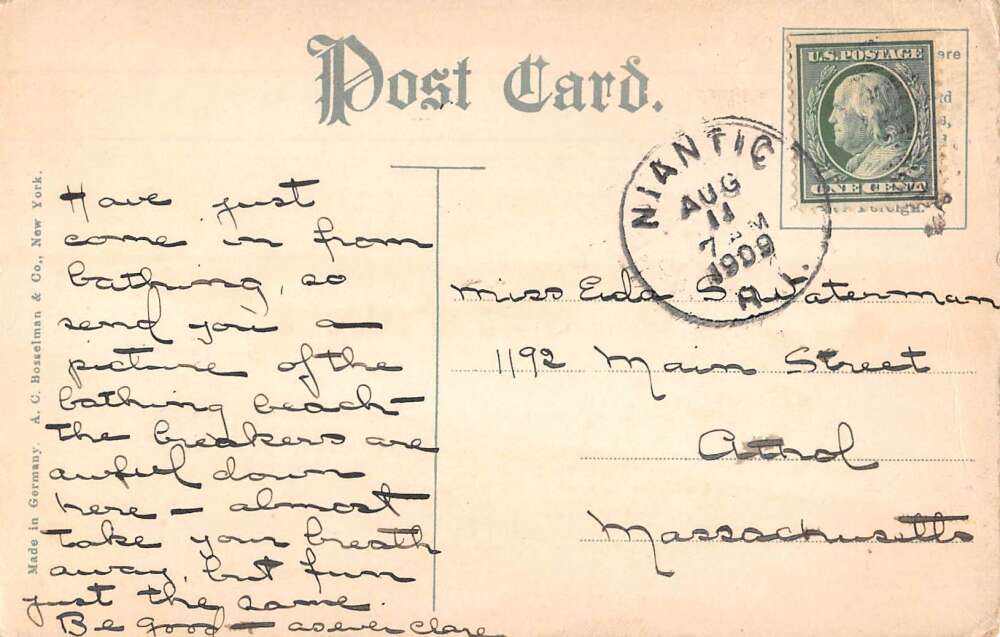 Post Card.
U.S. POSTAGE
ONE CENT
Foreign.
NIANTIC
AUG
14
7 PM
1909
R.I.
Made in Germany. A. C. Bosselman & Co., New York.
Have just
come in from
bathing, so
send you a
picture of the
bathing beach—
the breakers are
awful down
here — almost
take your breath
away, but fun
just the same.
Be good — as ever Clare
Miss Eda S. Waterman
1192 Main Street
Athol
Massachusetts